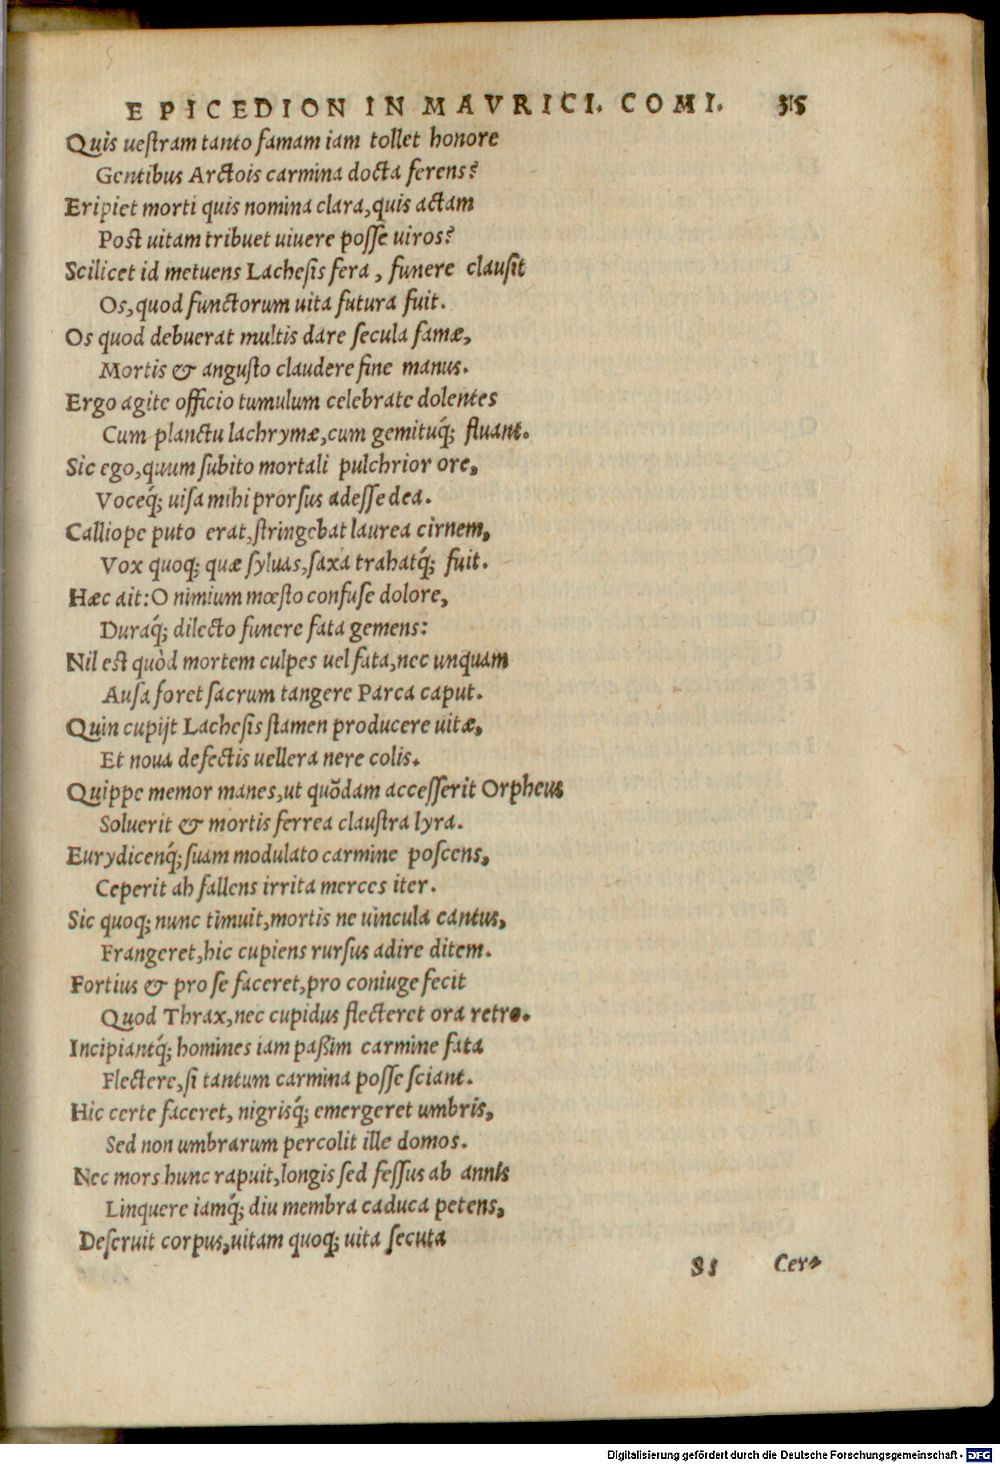 EPICEDION IN MAVRICI. COMI. 315
Quis uestram tanto famam iam tollet honore
Gentibus Arctois carmina docta ferens?
Eripiet morti quis nomina clara, quis actam
Post uitam tribuet uiuere posse uiros?
Scilicet id metuens Lachesis fera, funere clausit
Os, quod functorum uita futura fuit.
Os quod debuerat multis dare secula famæ,
Mortis & angusto claudere fine manus.
Ergo agite officio tumulum celebrate dolentes
Cum planctu lachrymæ, cum gemituq́; fluant.
Sic ego, quum subito mortali pulchrior ore,
Voceq́; uisa mihi prorsus adesse dea.
Calliope puto erat, stringebat laurea cirnem,
Vox quoq; quæ syluas, saxa trahatq́; fuit.
Hæc ait: O nimium mœsto confuse dolore,
Duraq́; dilecto funere fata gemens:
Nil est quòd mortem culpes uel fata, nec unquam
Ausa foret sacrum tangere Parca caput.
Quin cupijt Lachesis stamen producere uitæ,
Et noua defectis uellera nere colis.
Quippe memor manes, ut quõdam accesserit Orpheus
Soluerit & mortis ferrea claustra lyra.
Eurydicenq́; suam modulato carmine poscens,
Ceperit ah fallens irrita merces iter.
Sic quoq; nunc timuit, mortis ne uincula cantus,
Frangeret, hic cupiens rursus adire ditem.
Fortius & pro se faceret, pro coniuge fecit
Quod Thrax, nec cupidus flecteret ora retro.
Incipiantq́; homines iam paßim carmine fata
Flectere, si tantum carmina posse sciant.
Hic certe faceret, nigrisq́; emergeret umbris,
Sed non umbrarum percolit ille domos.
Nec mors hunc rapuit, longis sed fessus ab annis
Linquere iamq́; diu membra caduca petens,
Deseruit corpus, uitam quoq; uita secuta
S s Cer-
Digitalisierung gefördert durch die Deutsche Forschungsgemeinschaft - DFG